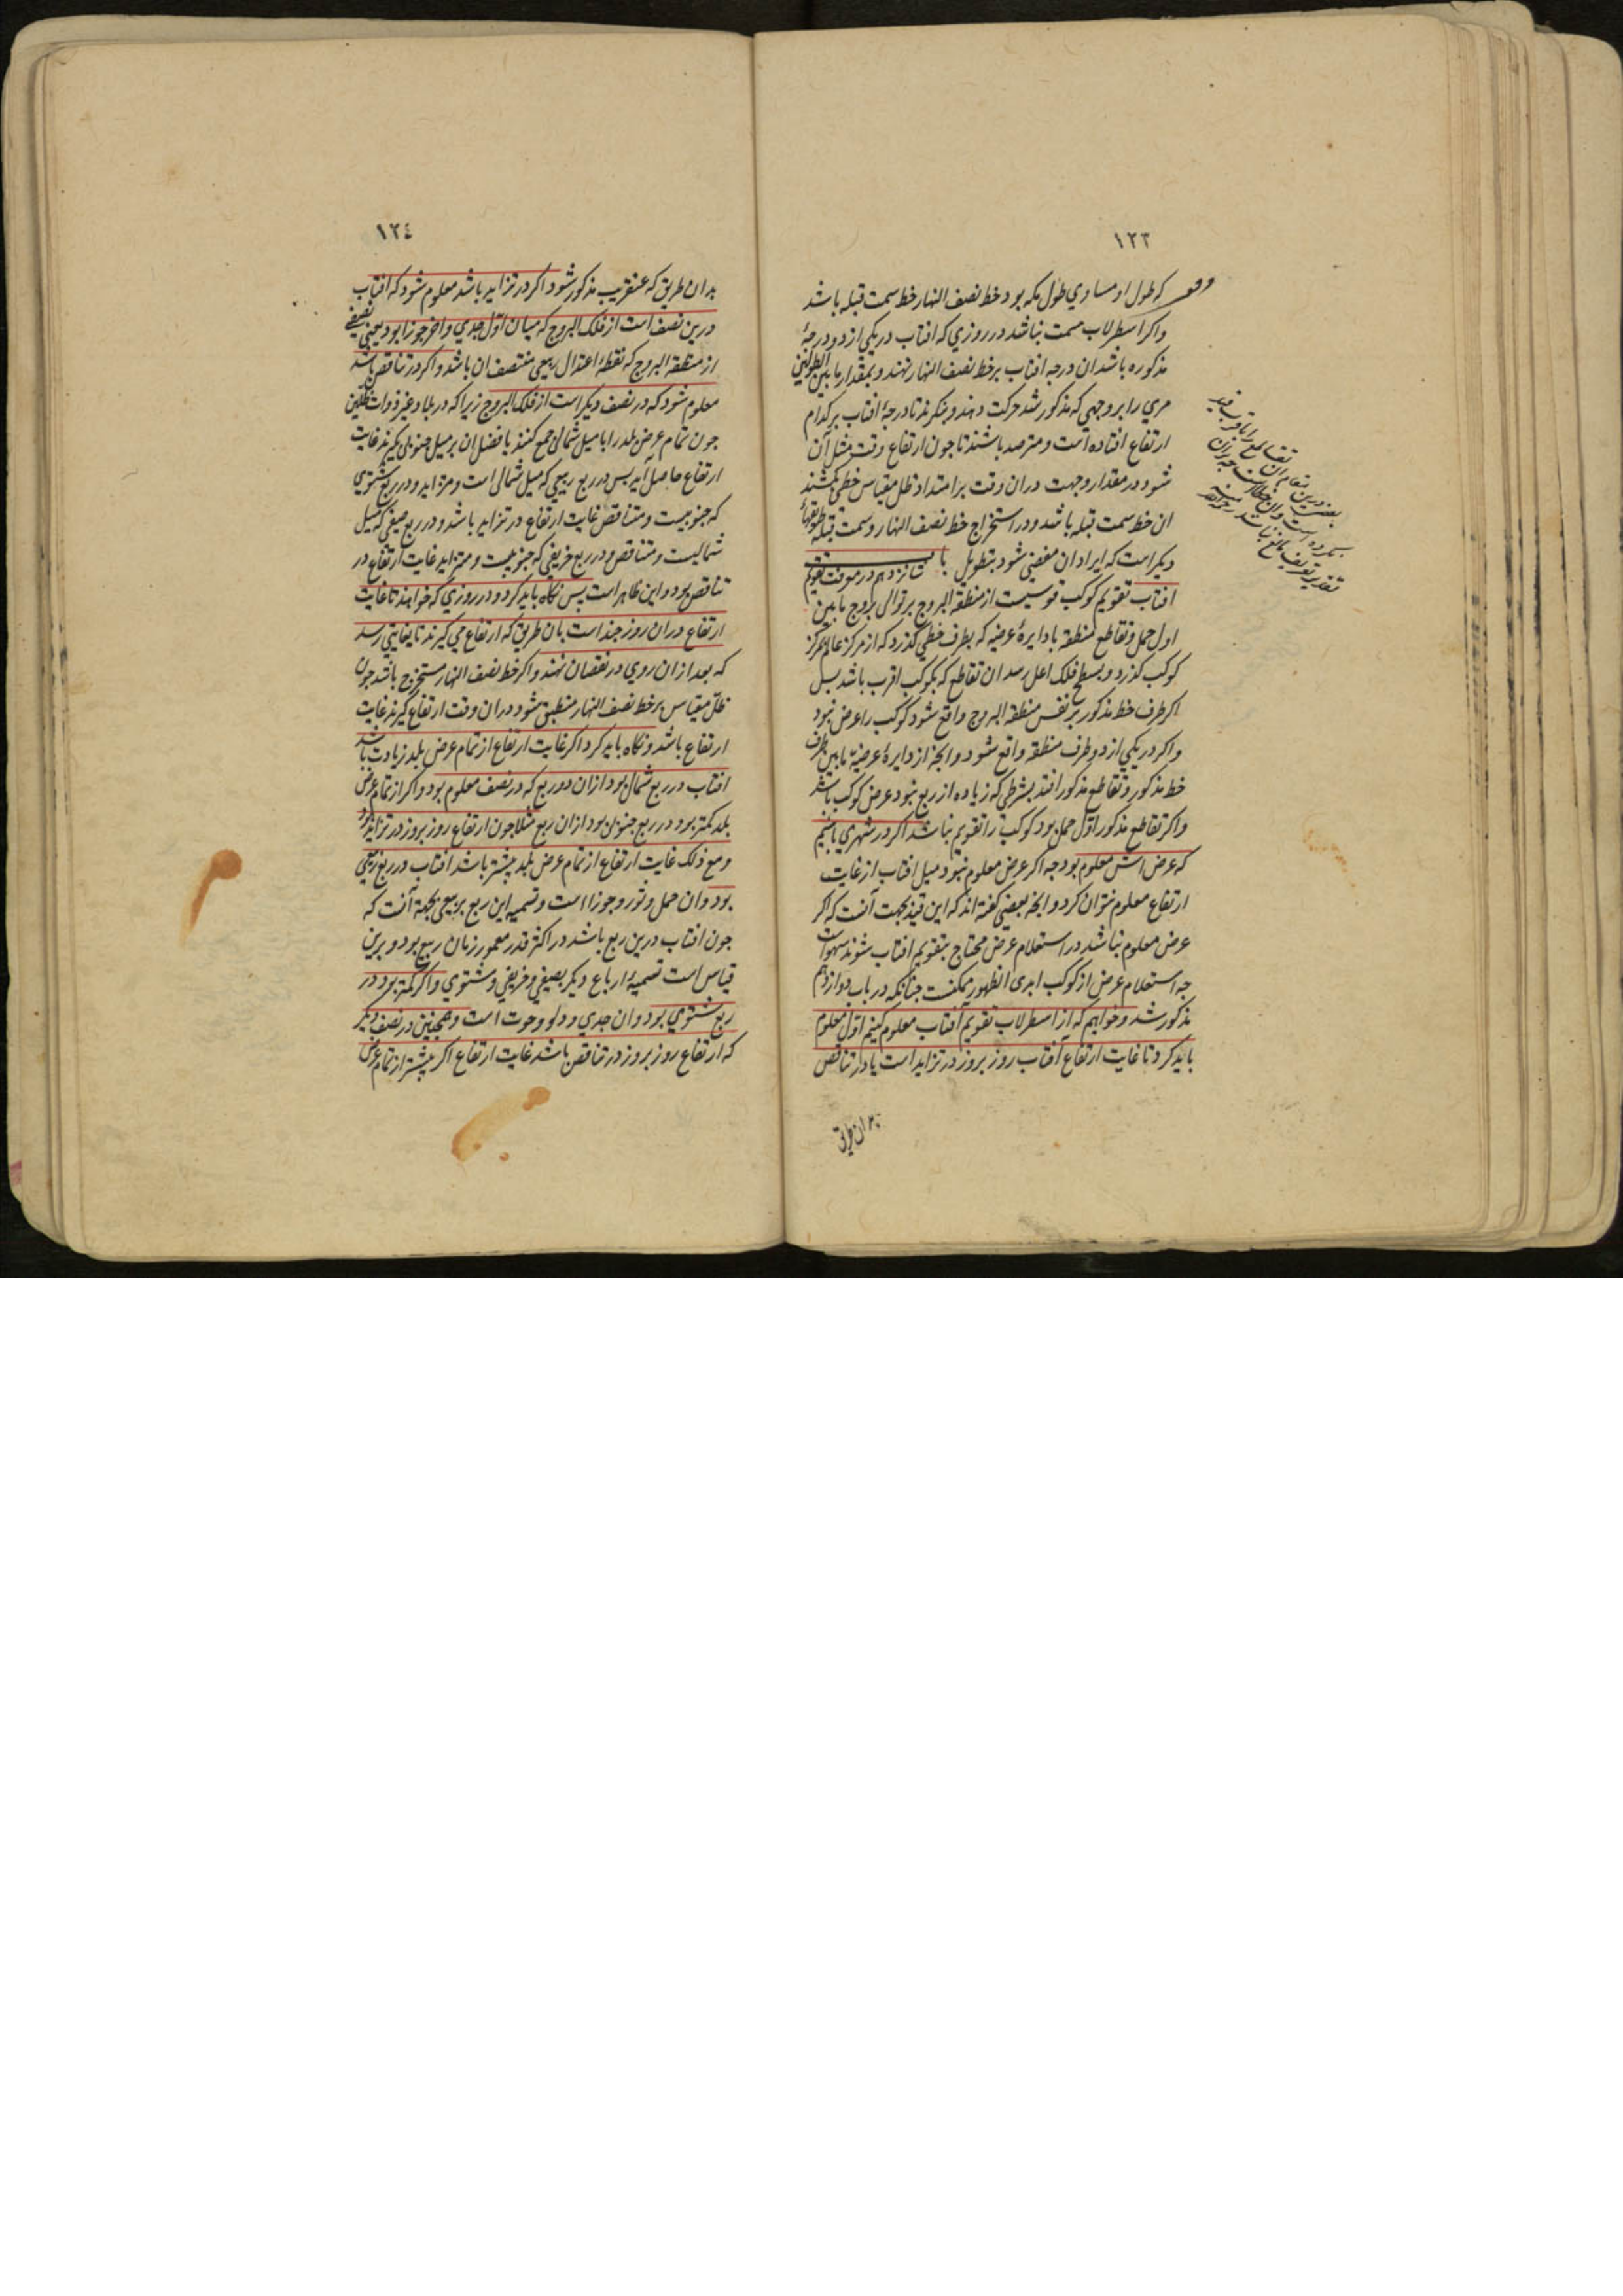 ١٢٣
که طول او مساوي طول مکه بود خط نصف النهار خط سمت قبله باشد
واکر اسطرلاب مسمت نباشد در روزي که افتاب در یکي از دو درجهٔ
مذکوره باشد ان درجه افتاب بر خط نصف النهار نهند وبمقدار ما بین الطولین
مري را بر وجهي که مذکور شد حرکت دهند وبنکرند تا درجهٔ افتاب بر کدام
ارتفاع افتاده است ومترصد باشند تا جون ارتفاع وقت مثل آن
شود در مقدار وجهت دران وقت بر امتداد ظل مقیاس خطي بکشند
ان خط سمت قبله باشد ودر استخراج خط نصف النهار وسمت قبله طریقهاء
دیکر است که ایراد ان مفضي شود بتطویل باب شانزدهم در معرفت تقویم
افتاب تقویم کوکب قوسیست از منطقة البروج بر توالی بروج ما بین
اول حمل وتقاطع منطقه با دایرهٔ عرضیه که بطرف خطي کذرد که از مرکز عالم بمرکز
کوکب کذرد وبسطح فلک اعلی رسد ان تقاطع که بکوکب اقرب باشد پس
اکر طرف خط مذکور بر نفس منطقة البروج واقع شود کوکب را عرض نبود
واکر در یکي از دو طرف منطقه واقع شود وانچه از دایرهٔ عرضیّه ما بین طرف
خط مذکور وتقاطع مذکور افتد بشرطي که زیاده از ربع نبود عرض کوکب باشد
واکر تقاطع مذکور اوّل حمل بود کوکب را تقویم نباشد اکر در شهري باشیم
که عرض اش معلوم بود جه اکر عرض معلوم نبود میل افتاب از غایت
ارتفاع معلوم نتوان کرد وانچه بعضي کفته اند که این قید بجهت آنست که اکر
عرض معلوم نباشد در استعلام عرض محتاج بتقویم افتاب شوند سهوست
جه استعلام عرض از کوکب ابدی الظهور ممکنست جنانکه در باب دوازدهم
مذکور شد وخواهیم که از اسطرلاب تقویم افتاب معلوم کنیم اوّل معلوم
باید کرد تا غایت ارتفاع افتاب روز بروز در تزاید است یا در تناقص
بدان طریق
١٢٤
بدان طریق که عنقریب مذکور شود اکر در تزاید باشد معلوم شود که افتاب
درین نصف است از فلک البروج که میان اوّل جدي واخر جوزا بود یعني نصفی
از منطقة البروج که نقطهٔ اعتدال ربیعی منتصف ان باشد واکر در تناقص باشد
معلوم شود که در نصف دیکر است از فلک البروج زیرا که در بلاد غیر ذوات ظلّین
جون تمام عرض بلد را با میل شمالی جمع کنند یا فضل ان بر میل جنوبی بکیرند غایت
ارتفاع حاصل آید پس در ربع ربیعي که میل شمالی است ومتزاید ودر ربع شتوي
که جنوبیست ومتناقص غایت ارتفاع در تزاید باشد ودر ربع صیفي که میل
شمالیست ومتناقص ودر ربع خریفي که جنوبیست ومتزاید غایت ارتفاع در
تناقص بود واین ظاهر است پس نکاه باید کرد ودر روزي که خواهند تا غایت
ارتفاع دران روز جند است بان طریق که ارتفاع می کیرند تا بغایتي رسد
که بعد ازان روي در نقصان نهند واکر خط نصف النهار مستخرج باشد جون
ظلّ مقیاس بر خط نصف النهار منطبق شود دران وقت ارتفاع کیرند غایت
ارتفاع باشد ونکاه باید کرد اکر غایت ارتفاع از تمام عرض بلد زیادت باشد
افتاب در ربع شمالی بود ازان دو ربع که در نصف معلوم بود واکر از تمام عرض
بلد کمتر بود در ربع جنوبی بود ازان ربع مثلا جون ارتفاع روز بروز در تزاید بود
ومع ذلک غایت ارتفاع از تمام عرض بلد بیشتر باشد افتاب در ربع ربیعي
بود وان حمل وثور وجوزا است وتسمیه این ربع بربیعی بجهة آنست که
جون افتاب درین ربع باشد در اکثر قدر معمور زمان ربیع بود وبرین
قیاس است تسمیهٔ ارباع دیکر بصیفي وخریفي وشتوي واکر کمتر بود در
ربع شتوي بود وان جدي ودلو وحوت است وهمجنین در نصف دیکر
که ارتفاع روز بروز در تناقص باشد غایت ارتفاع اکر بیشتر از تمام عرض